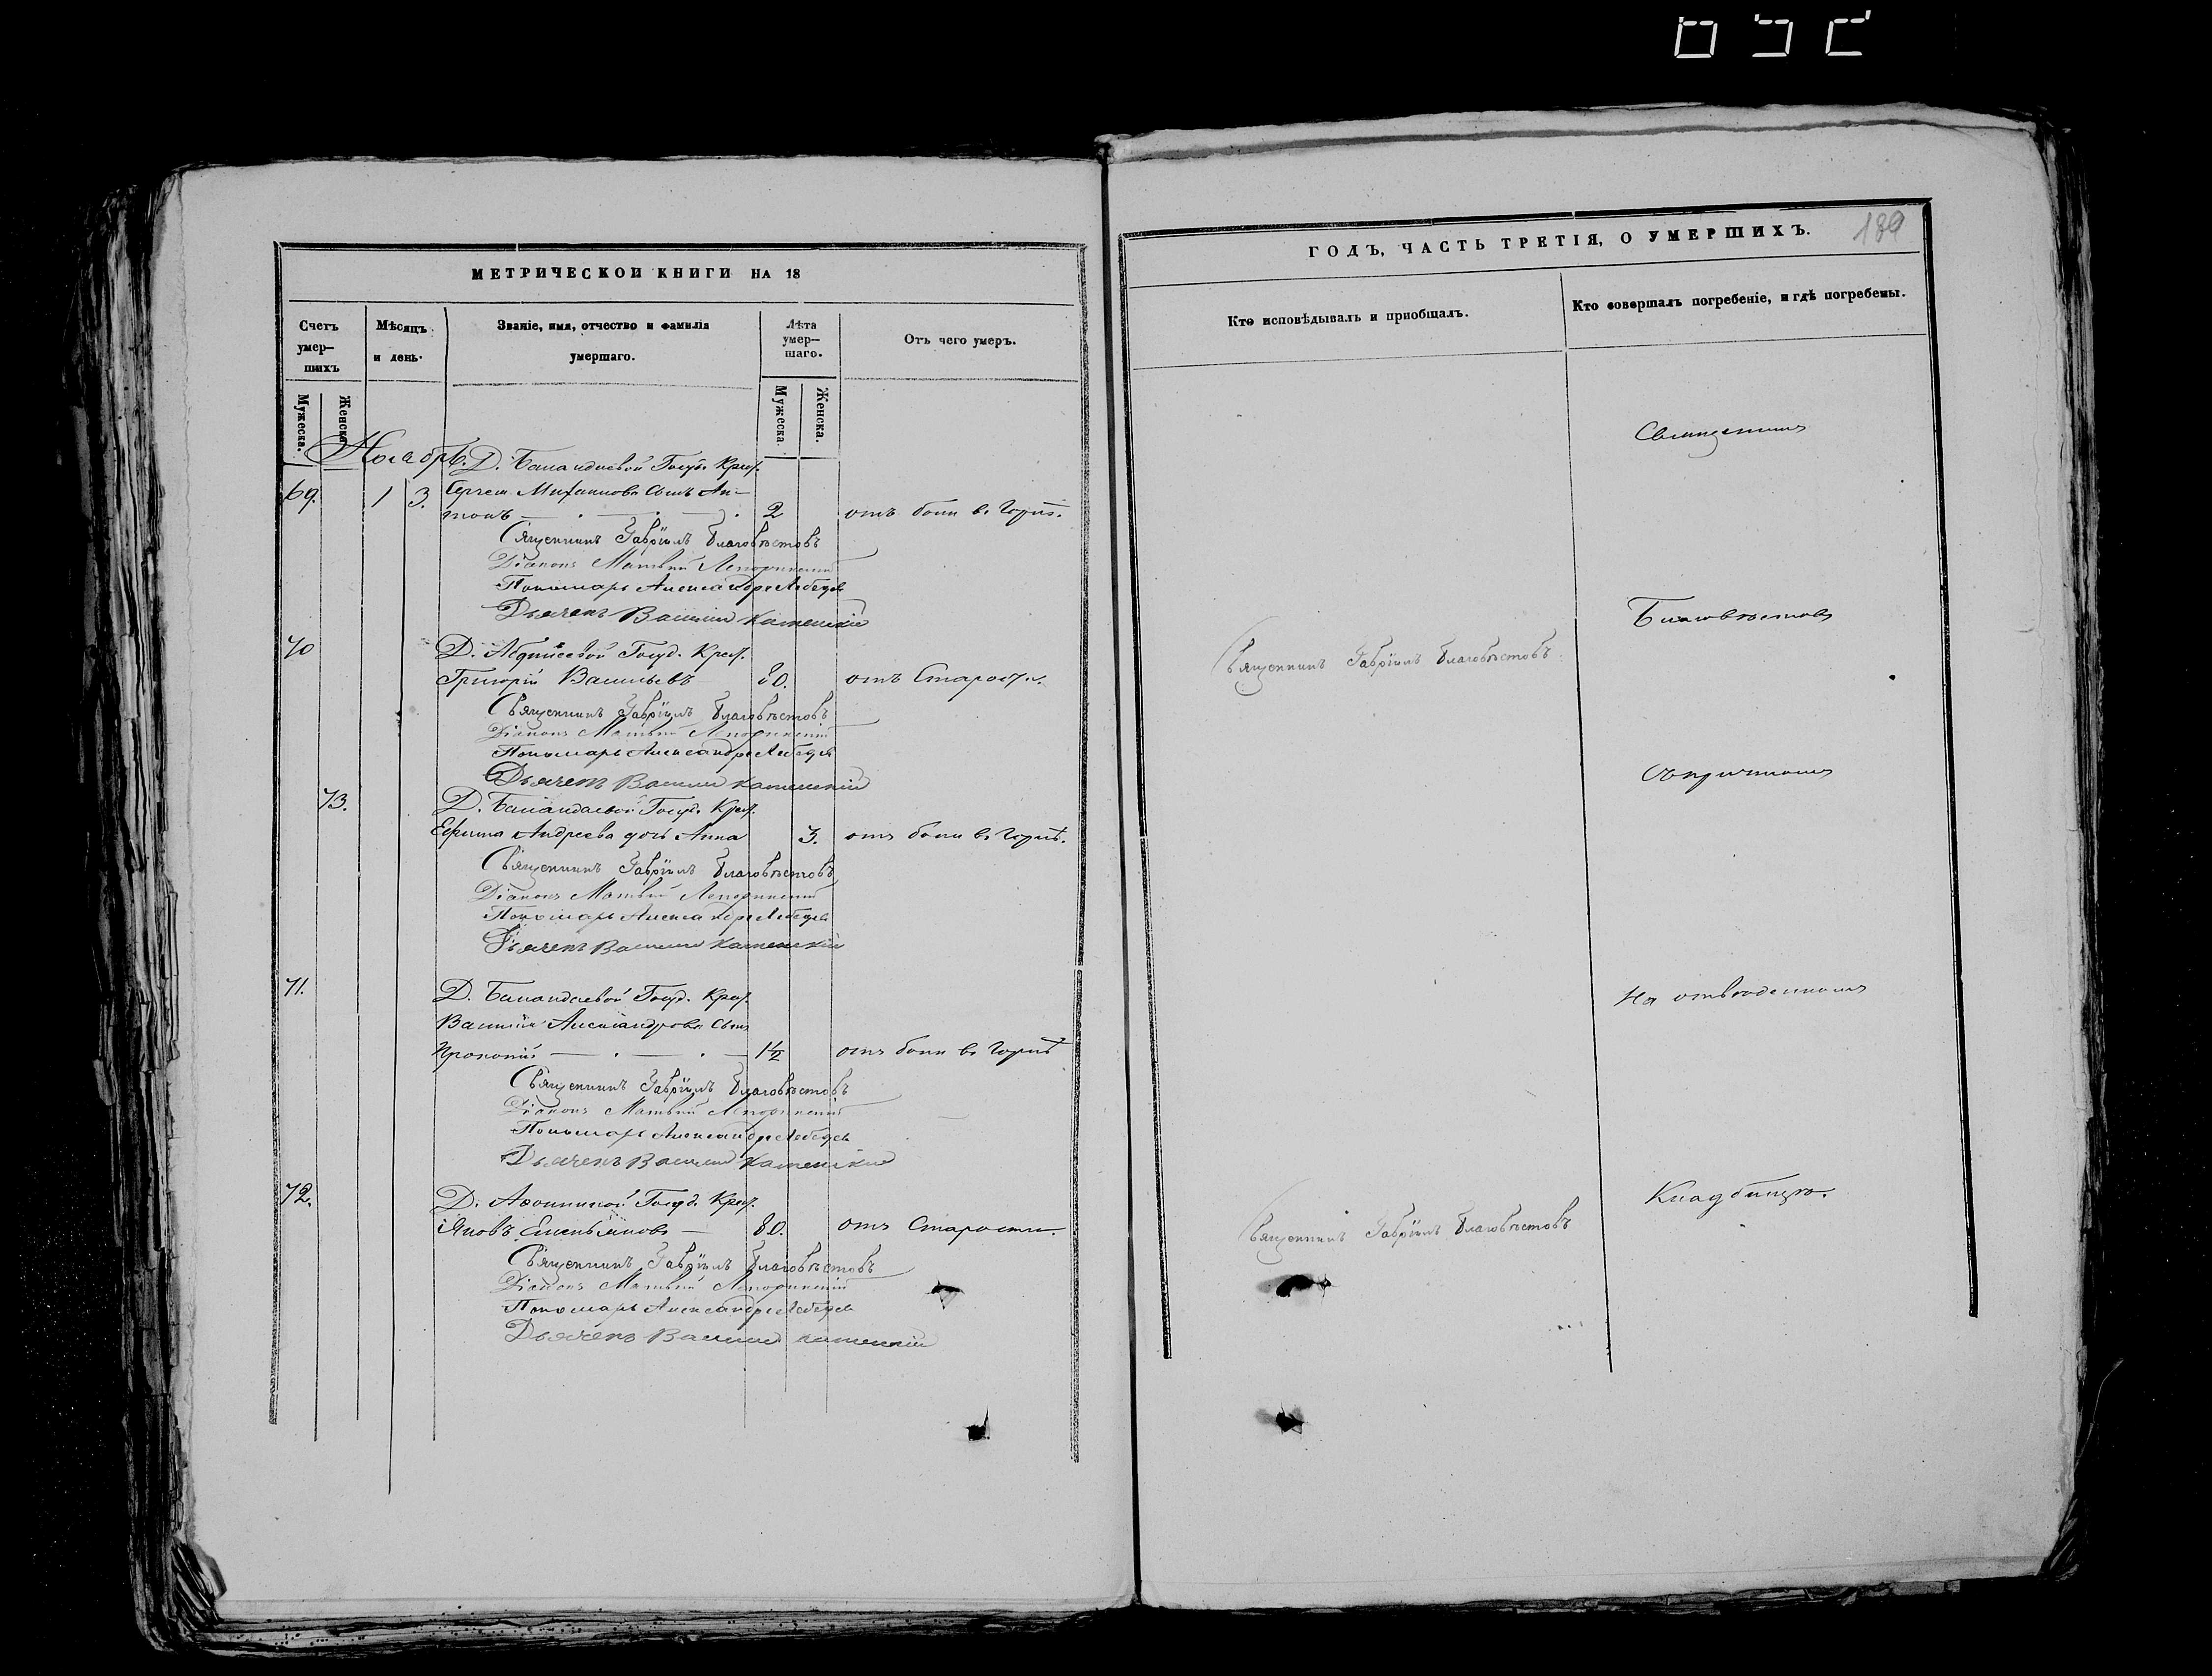 МЕТРИЧЕСКОЙ КНИГИ НА 18
Счетъ умер-шихъ
Мѣсяцъ и день.
Званіе, имя, отчество и фамилія умершаго.
Лѣта умер-шаго.
Отъ чего умеръ.
Мужеска.
Женска.
Мужеска.
Женска.
Ноябрь.
Д. Баландаевой Госуд. Крест.
69. 1 3. Сергея Михаилова сынъ Ан-
тонъ 2 отъ боли въ горлѣ.
Священникъ Гавріилъ Благовѣстовъ
Діаконъ Матвѣй
Пономарь Александръ Лебедев
Дьячекъ Василий Каменскій
70 Д. Госуд. Крест.
Григорій Васильевъ 80. отъ Старости.
Священникъ Гавріилъ Благовѣстовъ
Діаконъ Матвѣй
Пономарь Александръ Лебедев
Дьячекъ Василий Каменскій
73. Д. Баландаевой Госуд. Крест.
Ефима Андреева дочь Анна 3. отъ боли въ горлѣ.
Священникъ Гавріилъ Благовѣстовъ
Діаконъ Матвѣй
Пономарь Александръ Лебедев
Дьячекъ Василий Каменскій
71. Д. Баландаевой Госуд. Крест.
Василія Александрова сынъ
Прокопій 1½ отъ боли въ горлѣ
Священникъ Гавріилъ Благовѣстовъ
Діаконъ Матвѣй
Пономарь Александръ Лебедев
Дьячекъ Василий Каменскій
72. Д. Госуд. Крест.
Яковъ Емельяновъ 80. отъ Старости.
Священникъ Гавріилъ Благовѣстовъ
Діаконъ Матвѣй
Пономарь Александръ Лебедев
Дьячекъ Василий Каменскій
ГОДЪ, ЧАСТЬ ТРЕТІЯ, О УМЕРШИХЪ.
189
Кто исповѣдывалъ и пріобщалъ.
Кто совершалъ погребеніе, и гдѣ погребены.
Священникъ
Благовѣстовъ
Священникъ Гавріилъ Благовѣстовъ
Съ причтомъ
На отведенномъ
Кладбищѣ.
Священникъ Гавріилъ Благовѣстовъ